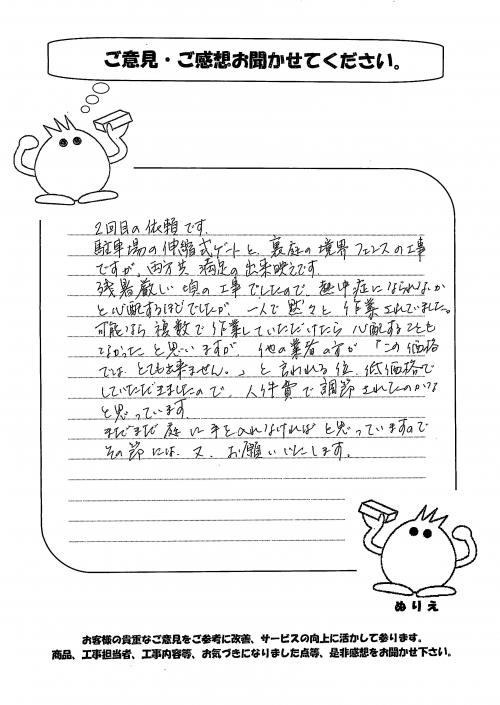 ご意見・ご感想お聞かせてください。
2回目の依頼です。
駐車場の伸縮式ゲートと、裏庭の境界フェンスの工事
ですが、両方共 満足の出来映えです。
残暑厳しい頃の工事でしたので、熱中症になられないか
と心配するほどでしたが、一人で黙々と作業されていました。
可能なら複数で作業していただけたら心配することも
なかったと思いますが、他の業者の方が「この価格
では、とても出来ません。」と言われる位、低価格で
していただきましたので、人件費で調節されたのかな
と思っています。
まだまだ庭に手を入れなければと思っていますので
その節には、又、お願いいたします。
ぬりえ
お客様の貴重なご意見をご参考に改善、サービスの向上に活かして参ります。
商品、工事担当者、工事内容等、お気づきになりました点等、是非感想をお聞かせ下さい。